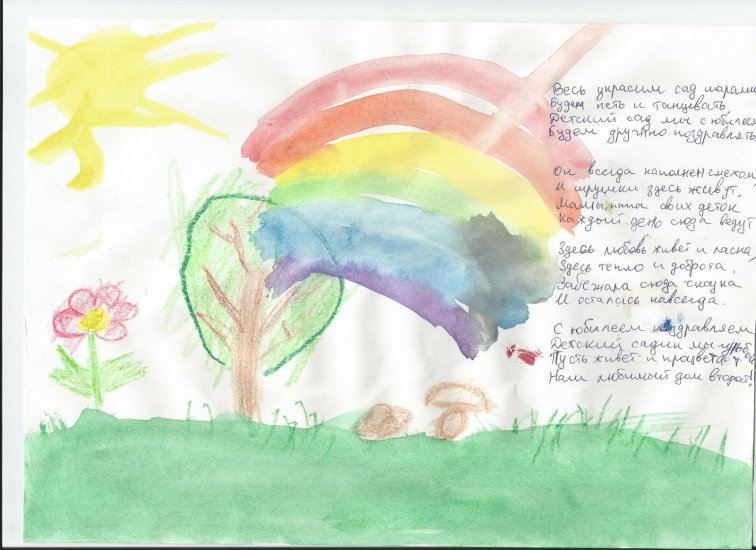 Весь украсим сад шарами
Будем петь и танцевать,
Детский сад мы с юбилеем
Будем дружно поздравлять
Он всегда наполнен смехом
И игрушки здесь живут,
Мамы, папа своих деток
Каждый день сюда ведут
Здесь любовь живёт и ласка,
Здесь тепло и доброта,
Забежала сюда сказка
И осталась навсегда.
С юбилеем поздравляем
Детский садик мы
Пусть живёт и процветает
Наш любимый дом второй!